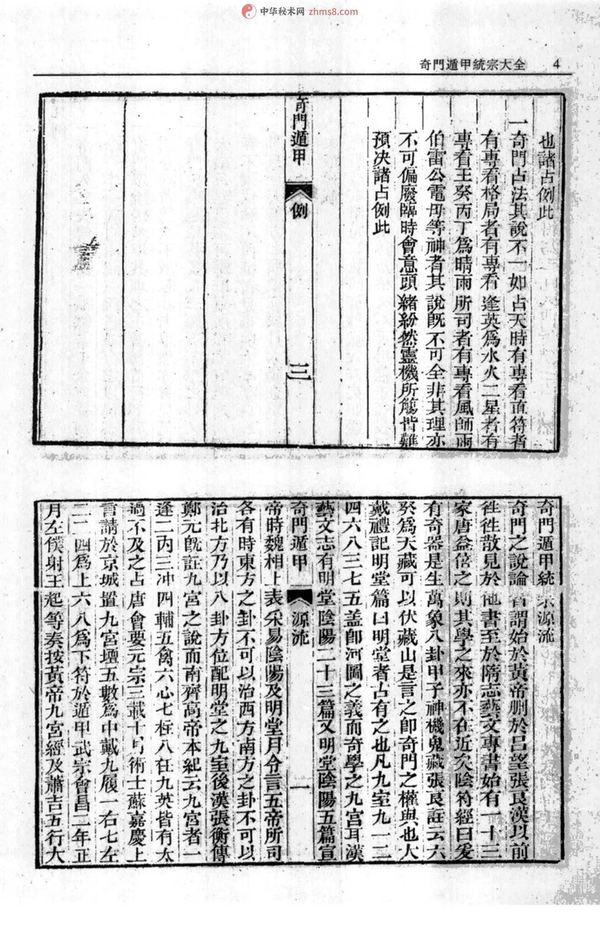 中华秘术网
zhms8.com
奇門遁甲統宗大全 4
也諸占例此
一奇門占法其說不一如占天時有專看直符者
有專看格局者有專看 逢英爲水火二星者有
專看壬癸丙丁爲晴雨所司者有專看風師雨
伯雷公電母等神者其說既不可全非其理亦
不可偏廢臨時會意頭緒紛然靈機所觸皆難
預決諸占例此
奇門遁甲 例 三
奇門遁甲統宗源流
奇門之說論者謂始於黃帝删於呂望張良漢以前
徃徃散見於他書至於隋志藝文專書始有一十三
家唐益倍之則其學之來亦不在近矣陰符經曰爰
有奇器是生萬象八卦甲子神機鬼藏張良註云六
癸爲天藏可以伏藏山是言之即奇門之權與也大
戴禮記明堂篇曰明堂者占有之也凡九室九一二
四六八三七五蓋卽河圖之義而奇學之九宮耳漢
藝文志有明堂陰陽二十三篇又明堂陰陽五篇宣
奇門遁甲 源流 一
帝時魏相上表采易陰陽及明堂月令言五帝所司
各有時東方之卦不可以治西方南方之卦不可以
治北方乃以八卦方位配明堂之九室後漢張衡傳
鄭元既註九宮之說而南齊高帝本紀云九宮者一
逢二丙三冲四輔五禽六心七柱八任九英皆有太
過不及之占唐會要元宗三載十月術士蘇嘉慶上
言請於京城置九宮壇五數爲中戴九履一右七左
二二四爲上六八爲下符於遁甲武宗會昌二年正
月左僕射王起等奏按黃帝九宮經及蕭吉五行大